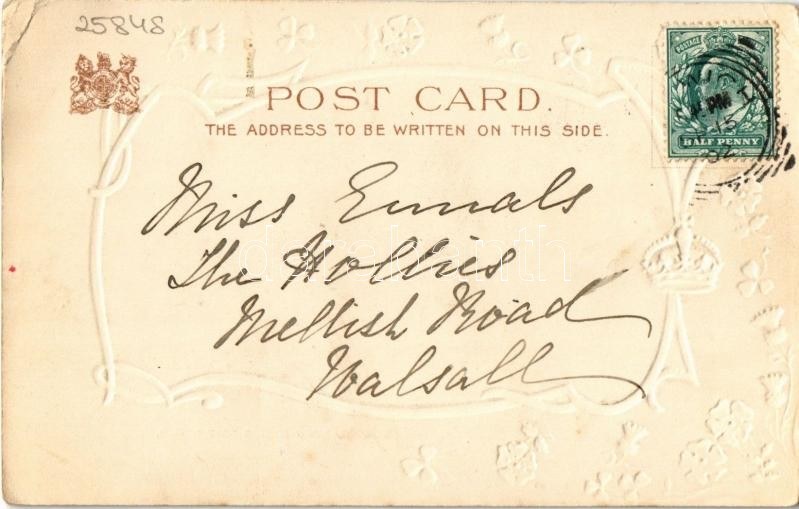 25848
POST CARD.
THE ADDRESS TO BE WRITTEN ON THIS SIDE.
POSTAGE
HALF PENNY
PM
15
02
Miss Ennals
The Hollies
Mellish Road
Walsall
darabanth